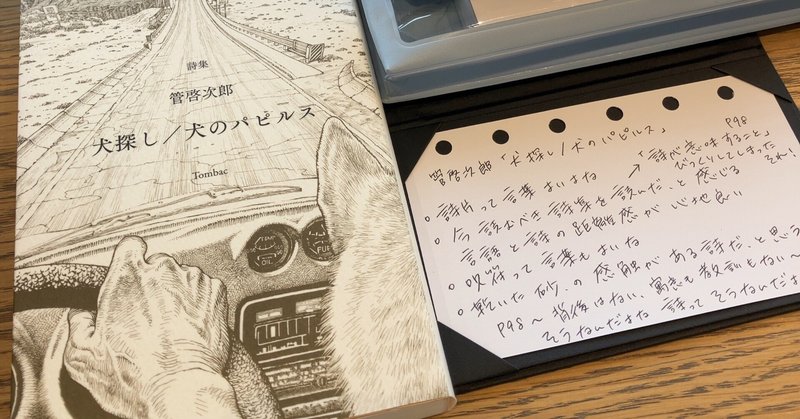 詩集
管啓次郎
犬探し／犬のパピルス
Tombac
OIL
FUEL
管啓次郎「犬探し／犬のパピルス」 P98
→「詩が意味すること」
びっくりしてしまった
それ!
○ 詩片って言葉はいいよね
○ 今読むべき詩集を読んだ、と感じる
言語と詩の距離感が心地良い
○ 吹笛って言葉もよいな
○ 乾いた砂の感触がある詩だ、と思う
P98〜背後はない、寓意も教訓もない〜
そうなんだよな 詩ってそうなんだよ